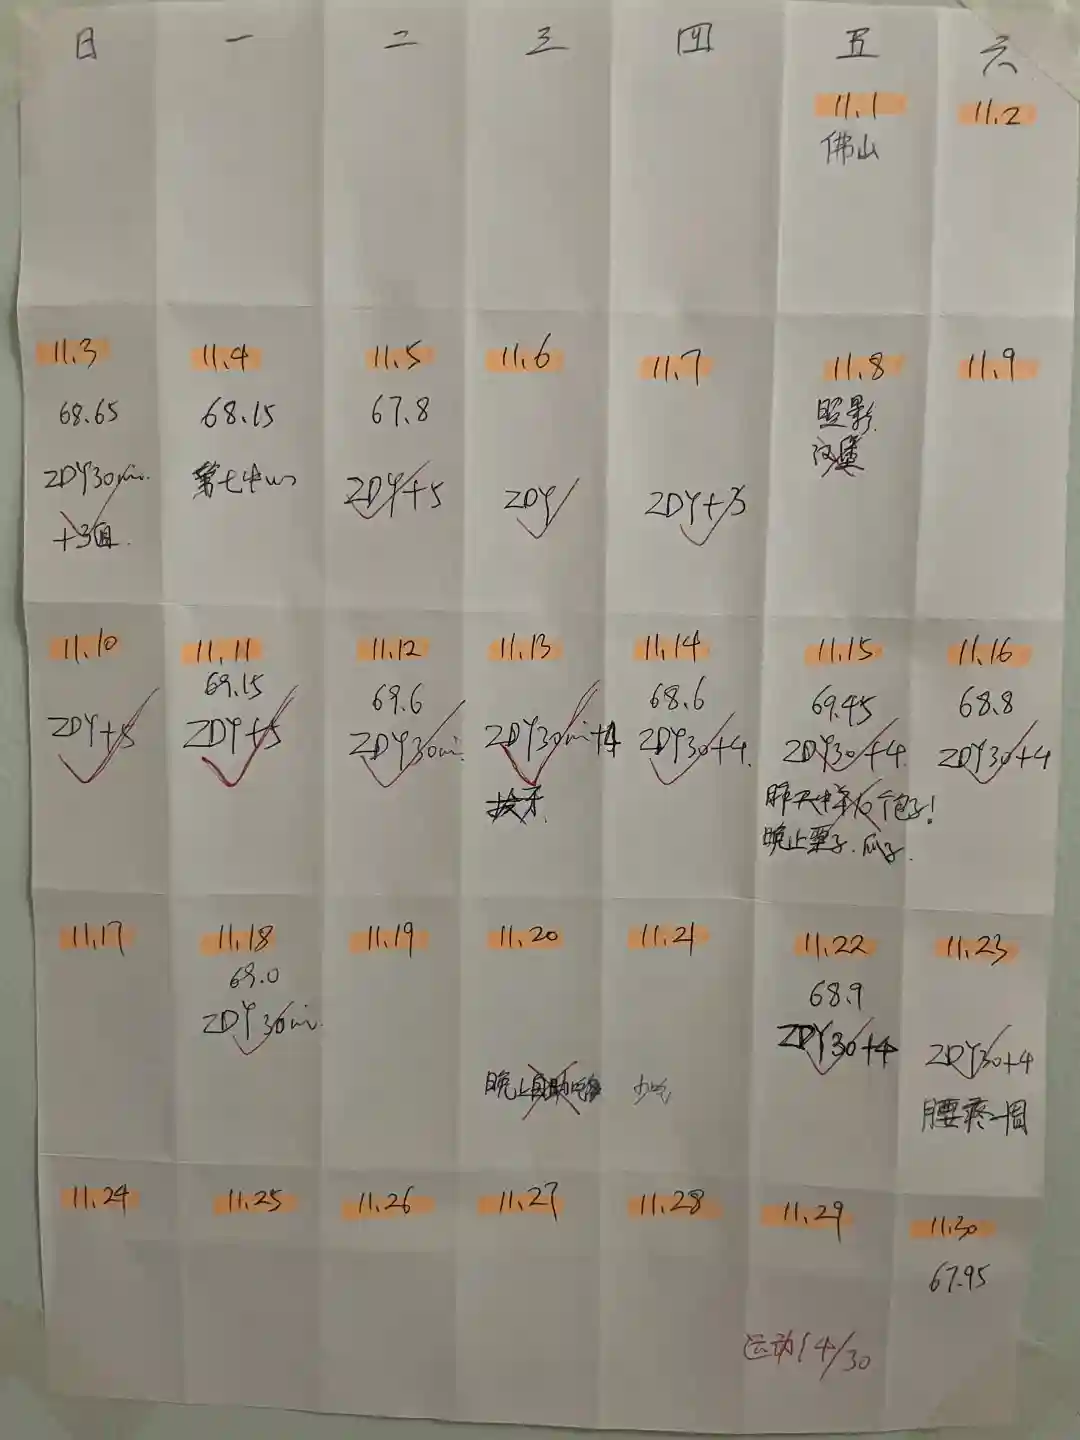 日 一 二 三 四 五 六
11.1 11.2
佛山
11.3 11.4 11.5 11.6 11.7 11.8 11.9
68.65 68.15 67.8
ZDY30min. 第七中心 ZDY+5 ZDY ZDY+3
+3组.
汉堡
11.10 11.11 11.12 11.13 11.14 11.15 11.16
69.15 69.6 68.6 69.45 68.8
ZDY+5 ZDY+5 ZDY30min. ZDY30min+4 ZDY30+4. ZDY30+4. ZDY30+4
拔牙.
昨天中午6个包子!
晚上栗子.瓜子.
11.17 11.18 11.19 11.20 11.21 11.22 11.23
69.0 68.9
ZDY30min. ZDY30+4 ZDY30+4
晚上自助 少吃
腰疼一周
11.24 11.25 11.26 11.27 11.28 11.29 11.30
67.95
运动14/30